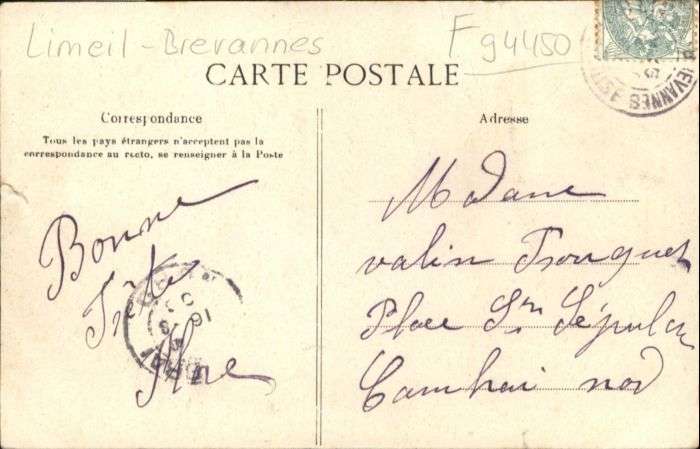 Limeil-Brevannes
F 94450
CARTE POSTALE
Correspondance
Tous les pays étrangers n'acceptent pas la
correspondance au recto, se renseigner à la Poste
Bonne
Fête
Adresse
Madame
Valin
Place St Sépulcre
Cambrai nord
BREVANNES